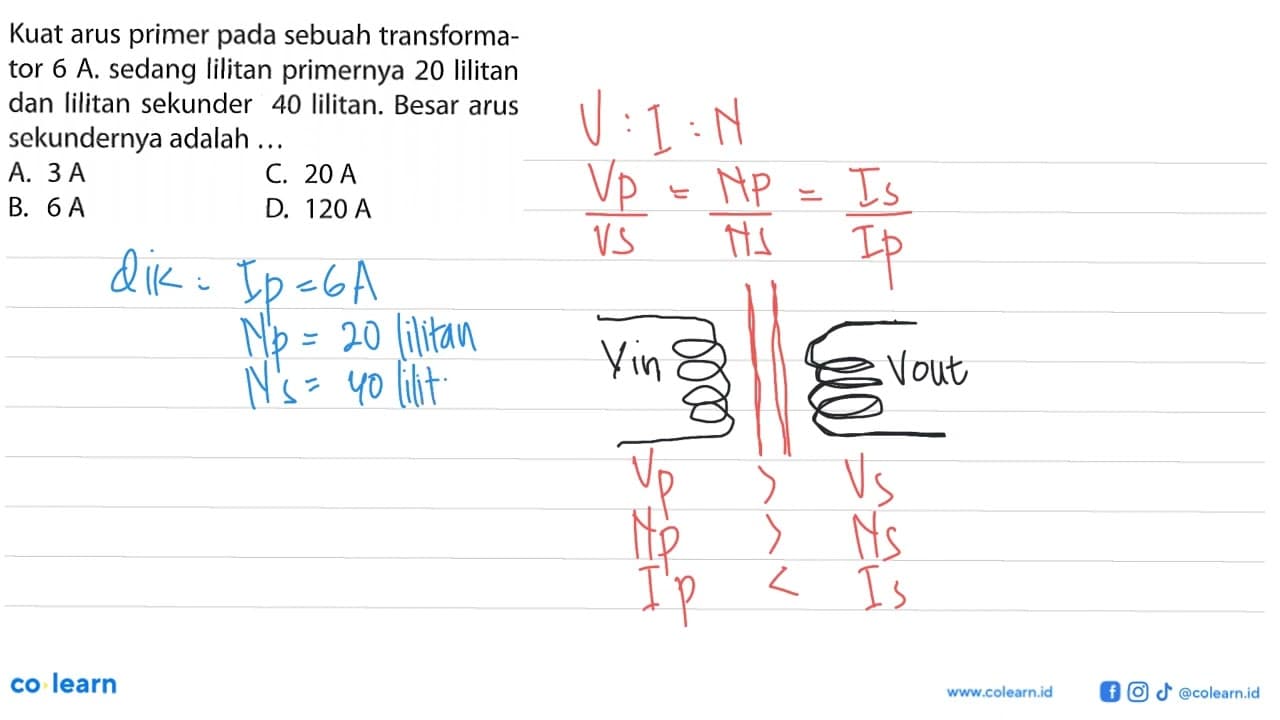 Kuat arus primer pada sebuah transforma-
tor 6 A. sedang lilitan primernya 20 lilitan
dan lilitan sekunder 40 lilitan. Besar arus
sekundernya adalah ...
A. 3 A C. 20 A
B. 6 A D. 120 A
dik : Ip = 6A
Np = 20 lilitan
Ns = 40 lilit.
V : I : N
Vp = Np = Is
Vs Ns Ip
Vin Vout
Vp > Vs
Np > Ns
Ip < Is
co learn
www.colearn.id @colearn.id